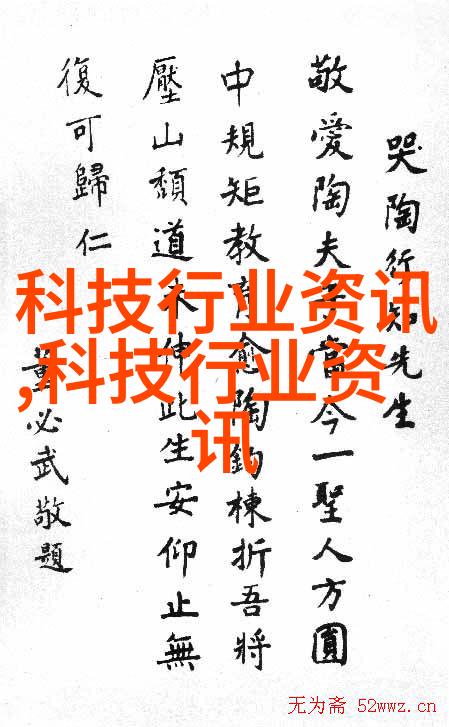 哭陶行知先生
敬愛陶夫子當今一聖人方圓
中規矩教育愈陶鈞棟折吾將
壓山頹道未伸此生安仰止無
復可歸仁
董必武敬題
科技行业资讯
,科技行业资
讯
无为斋 52wwz.cn